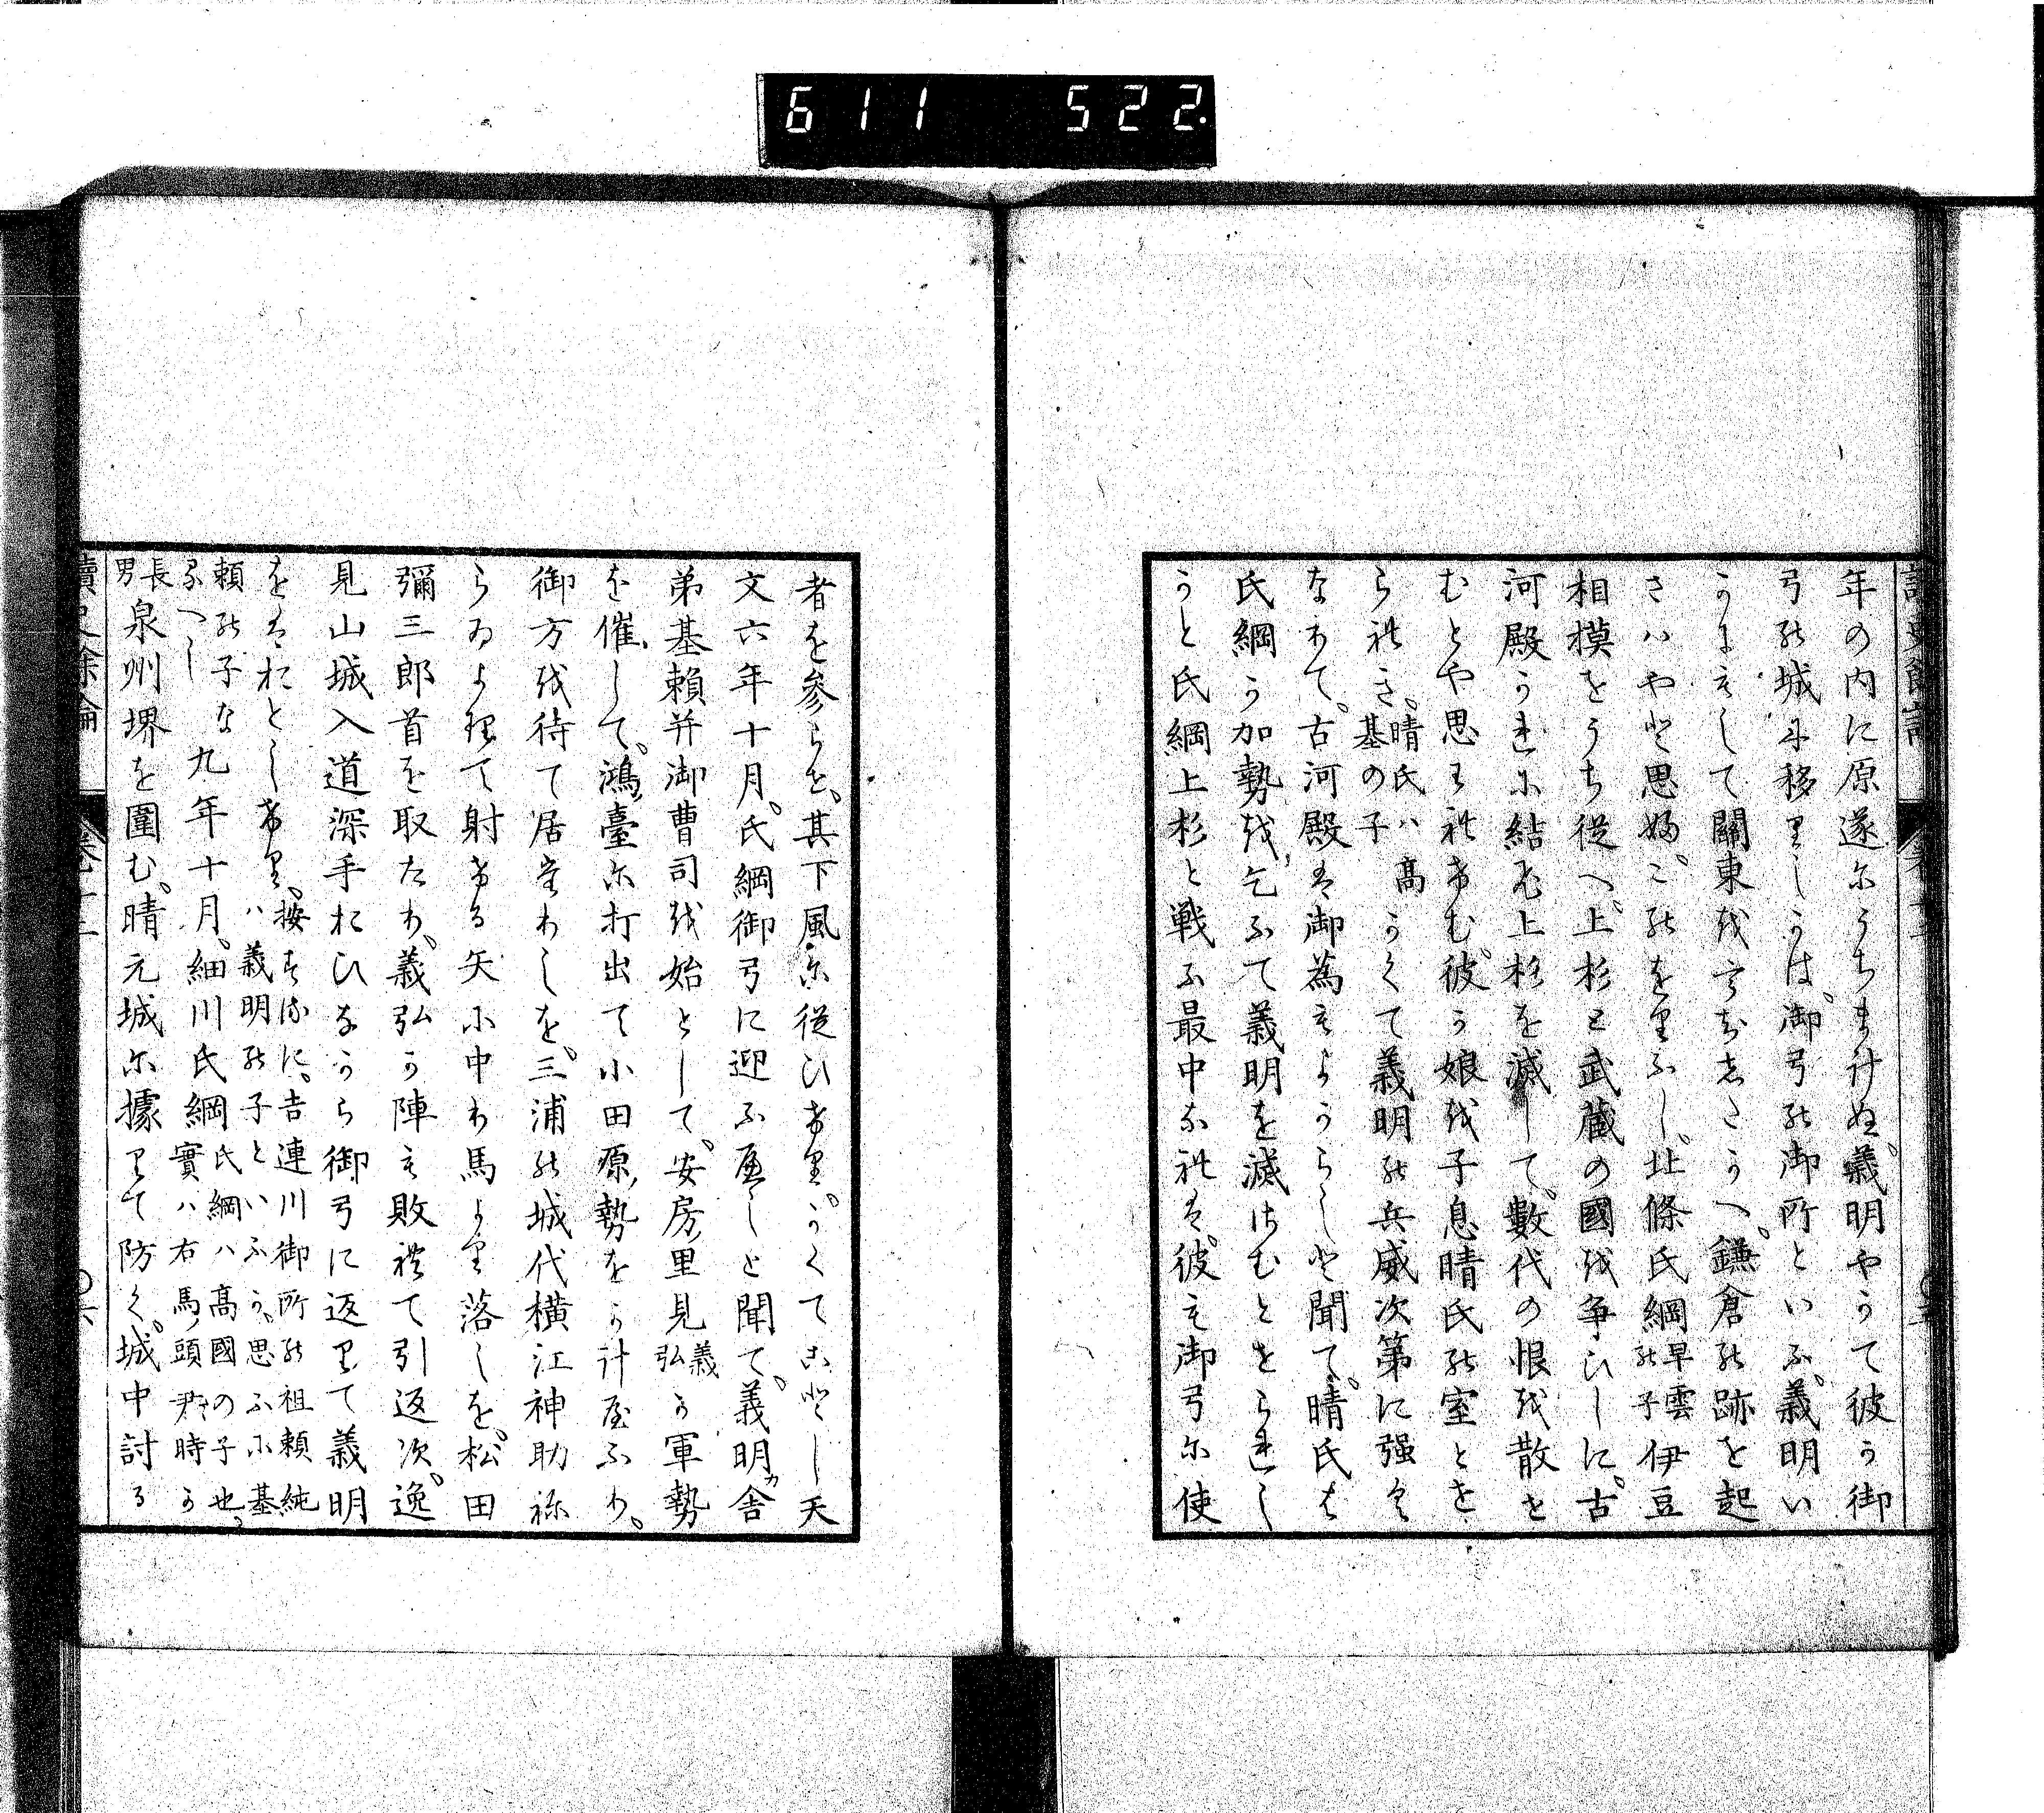 611 522.
年の内に原遂にうちまけぬ。義明やかて彼か御
弓の城に移りしかは。御弓の御所といふ。義明い
かにもして關東をうちしたかへ。鎌倉の跡を起
さはやと思ふ。このをりふし。北條氏綱早雲の子伊豆
相模をうち従へ。上杉と武蔵の國を争ひしに。古
河殿かれに結ひ上杉を滅して。數代の恨を散せ
むとや思はれけむ。彼か娘を子息晴氏の室とせ
られき。晴氏ハ高基の子かくて義明の兵威次第に强く
なりて。古河殿は御為もよからしと聞て。晴氏も
氏綱か加勢を乞ふて義明を滅せむとせられし
かと氏綱上杉と戦ふ最中なれは。彼も御弓に使
者を参らせ。其下風に従ひけり。かくてことし天
文六年十月。氏綱御弓に迎ふへしと聞て。義明舎
弟基頼并御曹司を始として。安房里見義弘か軍勢
を催して。鴻臺に打出て小田原勢をかけ屋ふり。
御方を待て居たりしを。三浦の城代横江神助弥
らゐより て射ける矢に中り馬より落しを。松田
彌三郎首を取たり。義弘か陣も敗れて引返次。逸
見山城入道深手おひなから御弓に返りて義明
をはおとしけり。按するに。吉連川御所の祖頼純ハ義明の子といふか。思ふに基
頼の子なるへし九年十月。細川氏綱氏綱ハ高國の子也。實ハ右馬頭尹時か
長男泉州堺を圍む。晴元城に據りて防く。城中討る
讀史餘論 卷十二